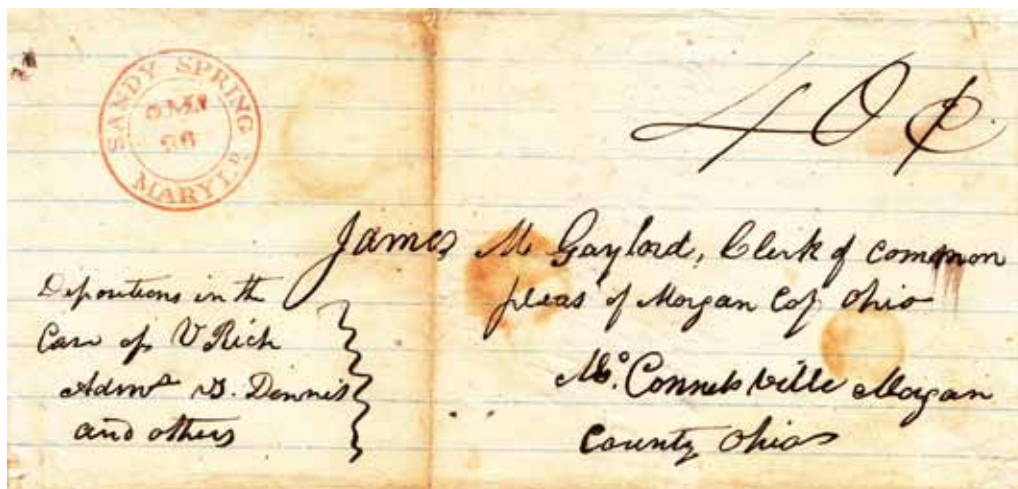 SANDY SPRING
MARYLD
26
40¢.
James M Gaylord, Clerk of common
pleas of Morgan Co Ohio
McConnelsville Morgan
County Ohio
Depositions in the
Case of V Rich
Admr vs. Dennis
and others